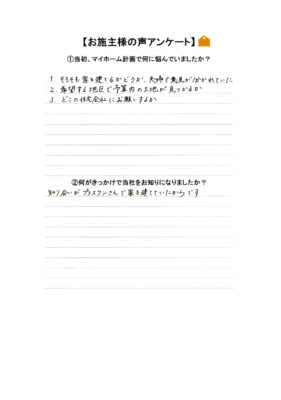 【お施主様の声アンケート】
①当初、マイホーム計画で何に悩んでいましたか？
1. そもそも家を建てるかどうか、夫婦で意見が分かれていた
2. 希望する地区で予算内の土地が見つかるか
3. どこの住宅会社にお願いするか
②何がきっかけで当社をお知りになりましたか？
知り合いがプラスワンさんで家を建てていたからです